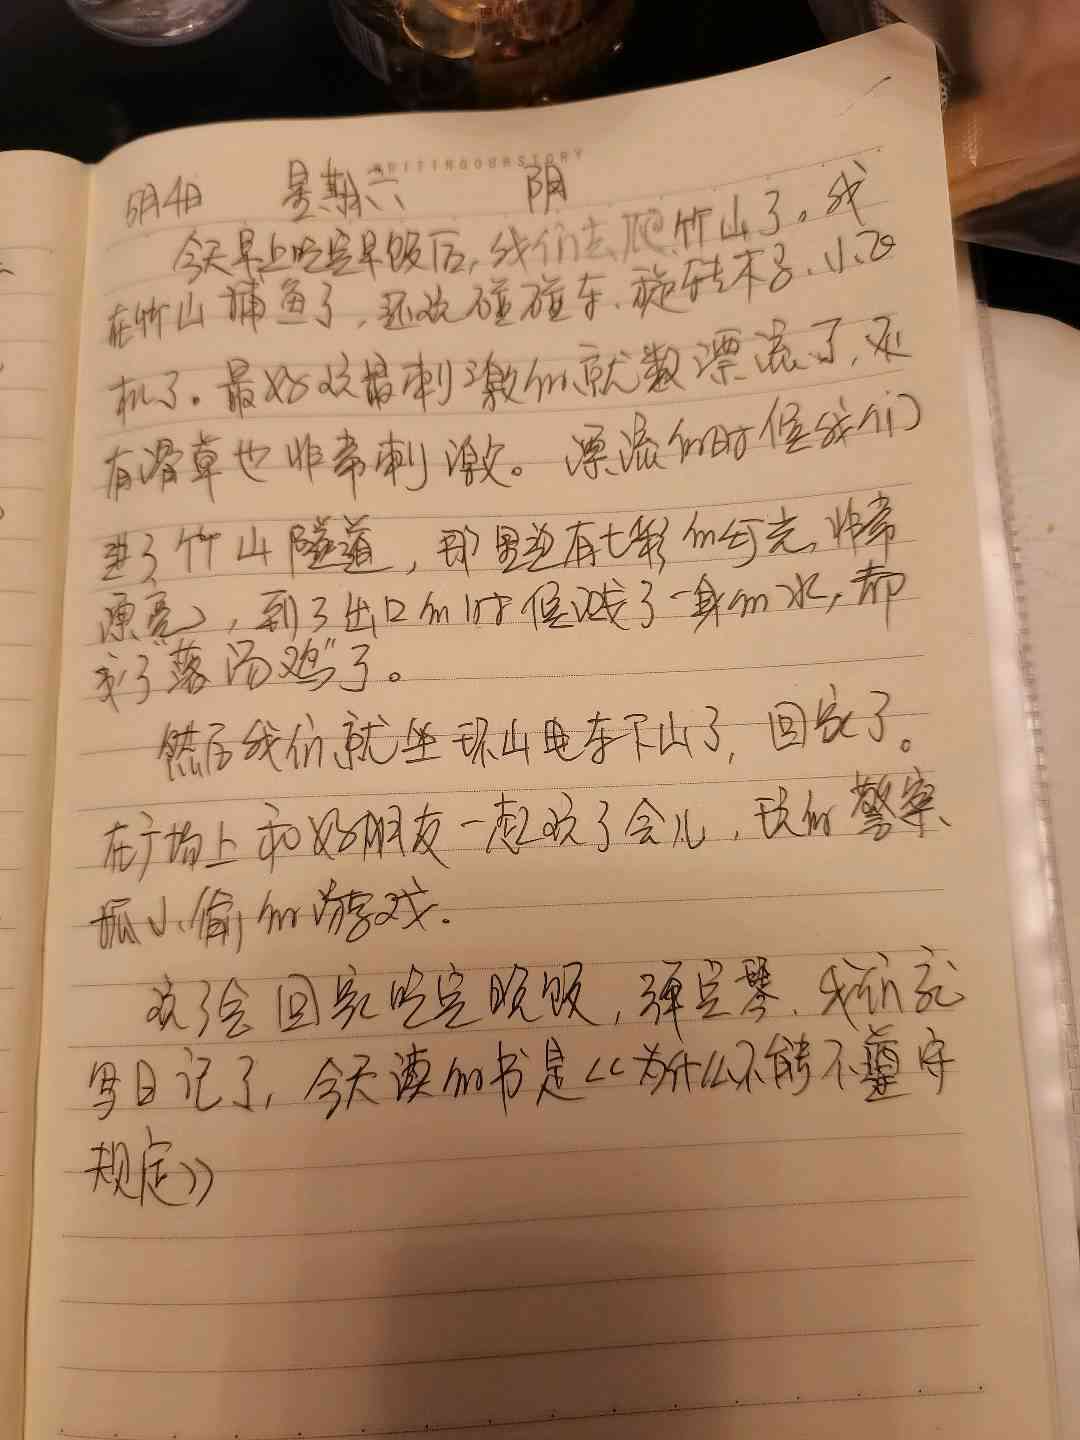 WRITINGOURSTORY
5月4日 星期六 阴
今天早上吃完早饭后，我们去爬竹山了。我
在竹山捕鱼了，还玩碰碰车、旋转木马、小飞
机了。最好玩最刺激的就数漂流了，还
有滑草也非常刺激。漂流的时候我们
进了竹山隧道，那里边有七彩的灯光，非常
漂亮，到了出口的时候溅了一身的水，都
成了“落汤鸡”了。
然后我们就坐环山电车下山了，回家了。
在广场上和好朋友一起玩了会儿，玩的警察
抓小偷的游戏。
玩了会回家吃完晚饭，弹完琴，我们就
写日记了，今天读的书是《为什么不能不遵守
规定》